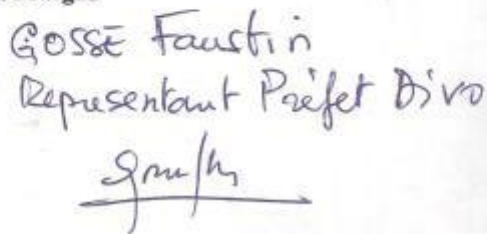 GOSSE Faustin
Représentant Préfet Divo